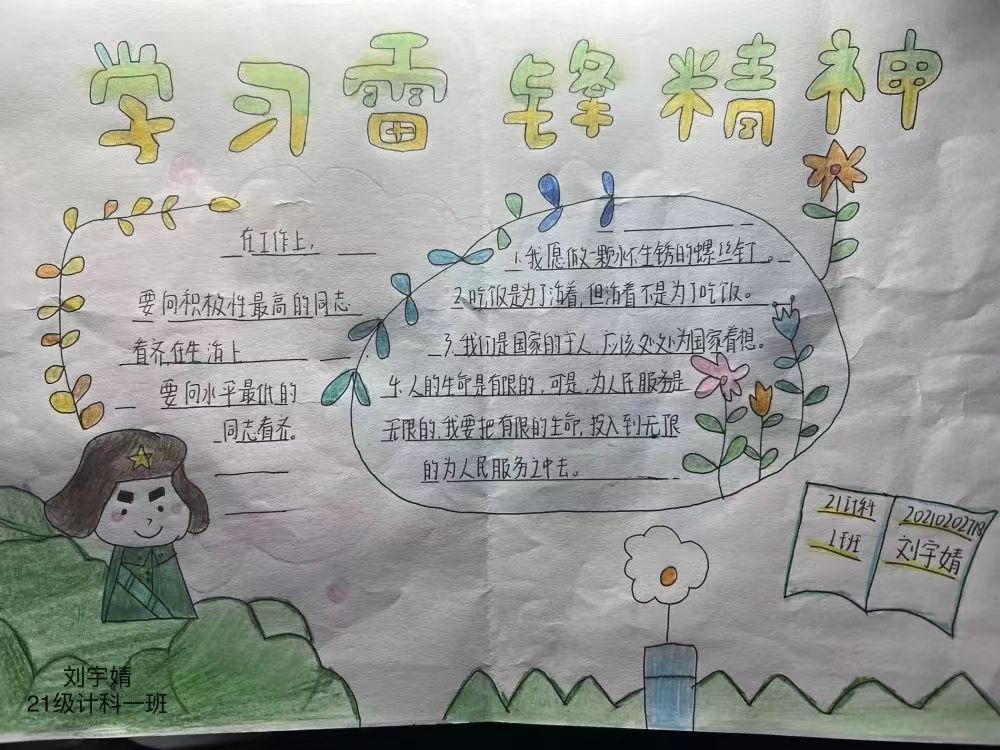 学习雷锋精神
在工作上，
要向积极性最高的同志
看齐，在生活上
要向水平最低的
同志看齐。
1.我愿做一颗永不生锈的螺丝钉。
2.吃饭是为了活着，但活着不是为了吃饭。
3.我们是国家的主人，应该处处为国家着想。
4.人的生命是有限的，可是，为人民服务是
无限的，我要把有限的生命，投入到无限
的为人民服务之中去。
21计科
1班
刘宇婧
刘宇婧
21级计科一班